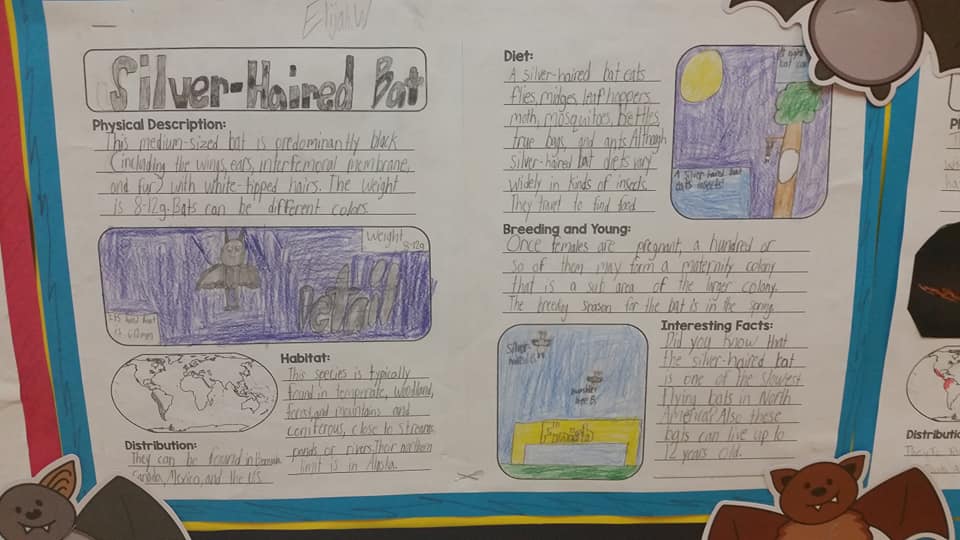 Elijah W
Silver-Haired Bat
Physical Description:
This medium-sized bat is predominantly black
(including the wings, ears, interfemoral membrane,
and fur) with white-tipped hairs. The weight
is 8-12g. Bats can be different colors
Weight
8-12g
Detail
Habitat:
This species is typically
found in temperate, woodland,
forest and mountains and
coniferous, close to streams,
ponds or rivers. Their northern
limit is in
Distribution:
They can be found in
Canada, Mexico, and the U.S.
Diet:
A silver-haired bat eats
flies, midges, leafhoppers
moth, mosquitoes, bettles
true bugs, and ants. Although
silver-haired bat diets vary
widely in kinds of insects
They travel to find food
A silver haired bat
eats insects!
Breeding and Young:
Once females are pregnant, a hundred or
so of them may form a maternity colony
that is a sub area of the larger colony.
The season for the bat is in the spring.
Silver
Interesting Facts:
Did you know that
the silver-haired bat
is one of the slowest
flying bats in North
America? Also these
bats can live up to
12 years old.